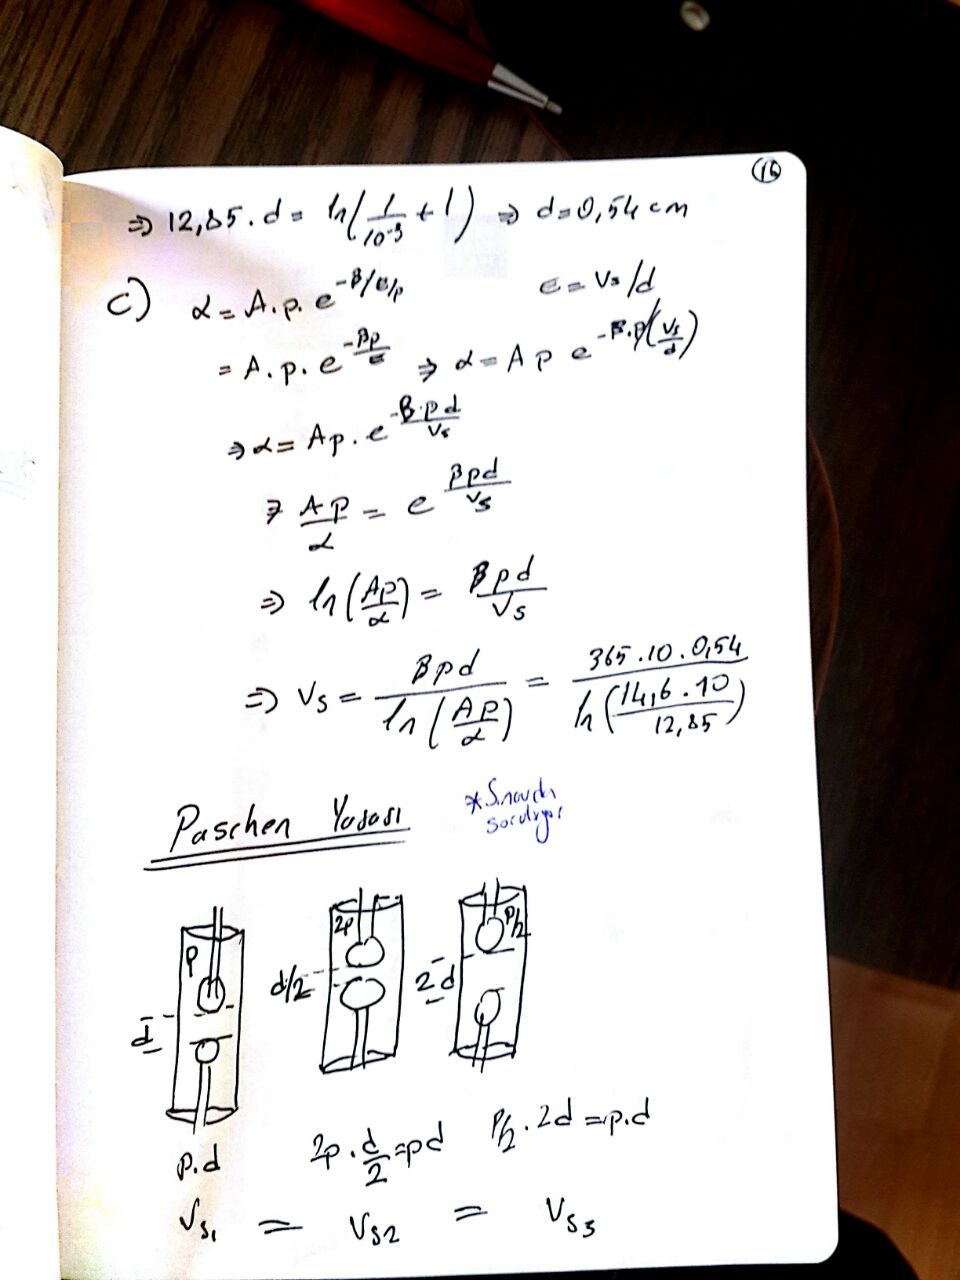 16
⇒ 12,85 . d = ln(1/10⁻³ + 1) ⇒ d = 0,54 cm
c) α = A.p. e^(-B/E/p) E = Vs/d
= A.p. e^(-Bp/E) ⇒ α = A p e^(-B.p/(Vs/d))
⇒ α = Ap . e^(-B.pd/Vs)
⇒ Ap/α = e^(Bpd/Vs)
⇒ ln(Ap/α) = Bpd/Vs
⇒ Vs = Bpd/ln(Ap/α) = 365.10.0,54/ln(14,6.10/12,85)
Paschen Yasası
*Sınavda
soruluyor
p 2p p/2
d d/2 2d
p.d 2p . d/2 = pd p/2 . 2d = p.d
Vs₁ = Vs2 = Vs3